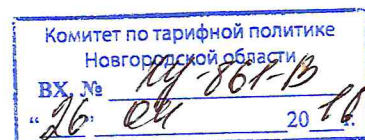 Комитет по тарифной политике
Новгородской области
ВХ. № НУ-861-В
"26" 04 2018 г.